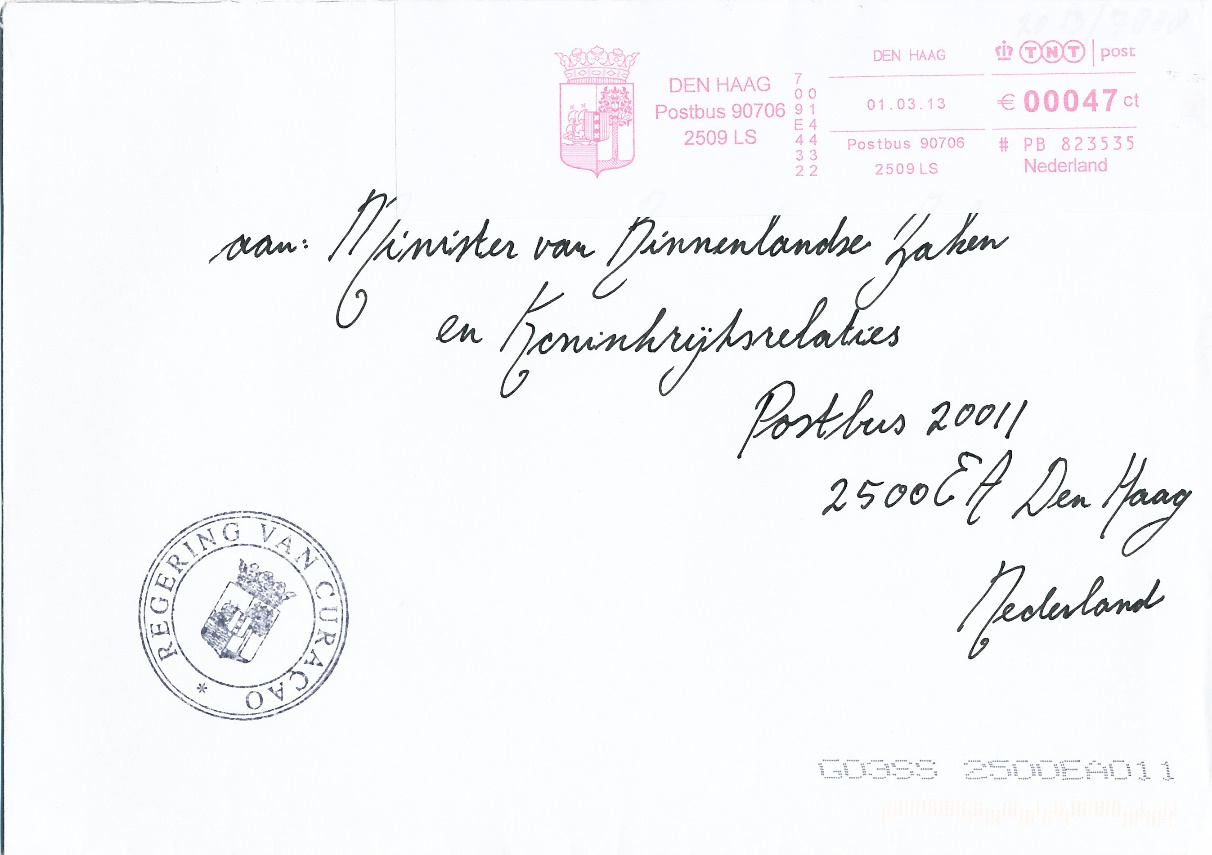 DEN HAAG
Postbus 90706
2509 LS
7
00
91
E4
44
33
22
DEN HAAG
01.03.13
Postbus 90706
2509 LS
TNT post
€ 00047 ct
# PB 823535
Nederland
aan: Minister van Binnenlandse Zaken
en Koninkrijksrelaties
Postbus 20011
2500 EA Den Haag
Nederland
REGERING VAN CURAÇAO *
G03SS 2500EA011